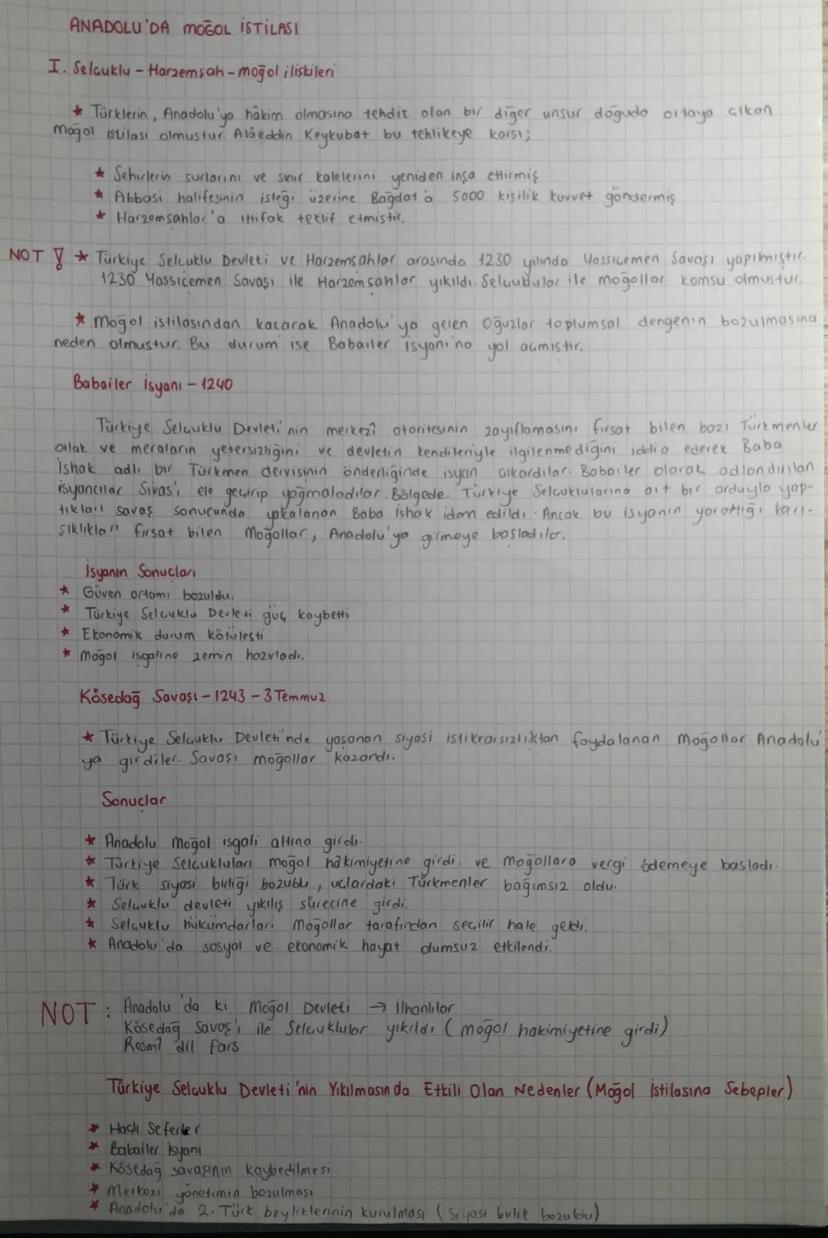 ANADOLU'DA MOĞOL İSTİLASI
I. Selcuklu - Harzemsah - moğol iliskileri
* Türklerin, Anadolu'ya hâkim olmasına tehdit olan bir diğer unsur doğuda ortaya cıkan
Moğol istilası olmustur. Alâeddin Keykubat bu tehlikeye karsı;
* Sehirlerin surlarını ve sınır kalelerini yeniden inşa ettirmiş
* Abbasi halifesinin isteği üzerine Bağdat'a 5000 kisilik kuvvet göndermiş
* Harzemsahlar'a ittifak teklif etmistir.
NOT ! * Türkiye Selcuklu Devleti ve Harzemsahlar arasında 1230 yılında Yassıcemen Savaşı yapılmıştır.
1230 Yassıcemen Savası ile Harzemsahlar yıkıldı. Selcuklular ile moğollar komsu olmustur.
* Moğol istilasından kacarak Anadolu'ya gelen Oğuzlar toplumsal dengenin bozulmasına
neden olmustur. Bu durum ise Babailer isyanı'na yol acmıstır.
Babailer İsyanı - 1240
Türkiye Selcuklu Devleti'nin merkezî otoritesinin zayıflamasını fırsat bilen bazı Türkmenler
otlak ve meraların yetersizliğini ve devletin kendileriyle ilgilenmediğini iddia ederek Baba
İshak adlı bir Türkmen dervisinin önderliğinde isyan cıkardılar. Babailer olarak adlandırılan
isyancılar Sivas'ı ele geçirip yağmaladılar. Bölgede Türkiye Selcuklularına ait bir orduyla yap-
tıkları savaş sonucunda yakalanan Baba İshak idam edildi. Ancak bu isyanın yarattığı karı-
sıklıkları fırsat bilen Moğollar, Anadolu'ya girmeye basladılar.
İsyanın Sonucları
* Güven ortamı bozuldu.
* Türkiye Selcuklu Devleti güç kaybetti
* Ekonomik durum kötülesti
* Moğol isgaline zemin hazırladı.
Kösedağ Savaşı - 1243 - 3 Temmuz
* Türkiye Selcuklu Devleti'nde yaşanan siyasi istikrarsızlıktan faydalanan Moğollar Anadolu'
ya girdiler. Savaşı moğollar kazandı.
Sonuclar
* Anadolu Moğol isgali altına girdi.
* Türkiye Selcukluları moğol hâkimiyetine girdi. ve Moğollara vergi ödemeye basladı.
* Türk siyasi birliği bozuldu, uclardaki Türkmenler bağımsız oldu.
* Selcuklu devleti yıkılış sürecine girdi.
* Selcuklu hükümdarları Moğollar tarafından secilir hale geldi.
* Anadolu'da sosyal ve ekonomik hayat olumsuz etkilendi.
NOT : Anadolu'da ki Moğol Devleti → İlhanlılar
Kösedağ Savaş'ı ile Selcuklular yıkıldı (moğol hakimiyetine girdi)
Resmî dil fars
Türkiye Selcuklu Devleti'nin Yıkılmasında Etkili Olan Nedenler (Moğol İstilasına Sebepler)
* Haclı Seferler
* Babailer İsyanı
* Kösedağ savasının kaybedilmesi
* Merkezi yönetimin bozulması
* Anadolu'da 2. Türk beyliklerinin kurulması (Siyasi birlik bozuldu)